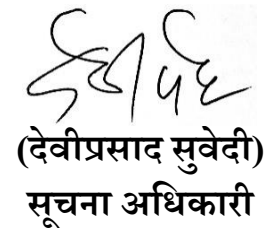 (देवीप्रसाद सुवेदी)
सूचना अधिकारी